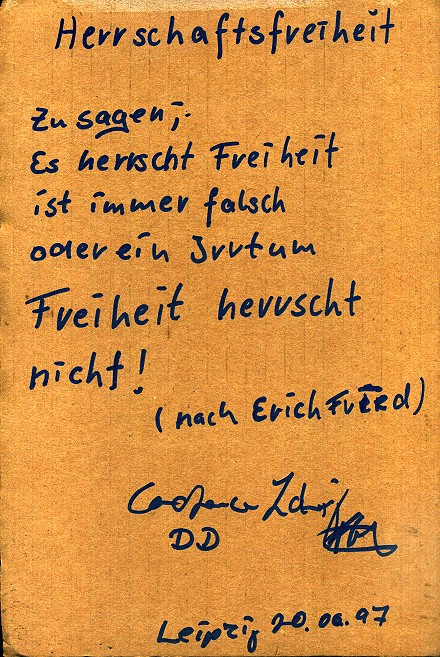 Herrschaftsfreiheit
Zu sagen;
Es herrscht Freiheit
ist immer falsch
oder ein Irrtum
Freiheit herrscht
nicht!
(nach Erich Fried)
DD
Leipzig 20.06.97